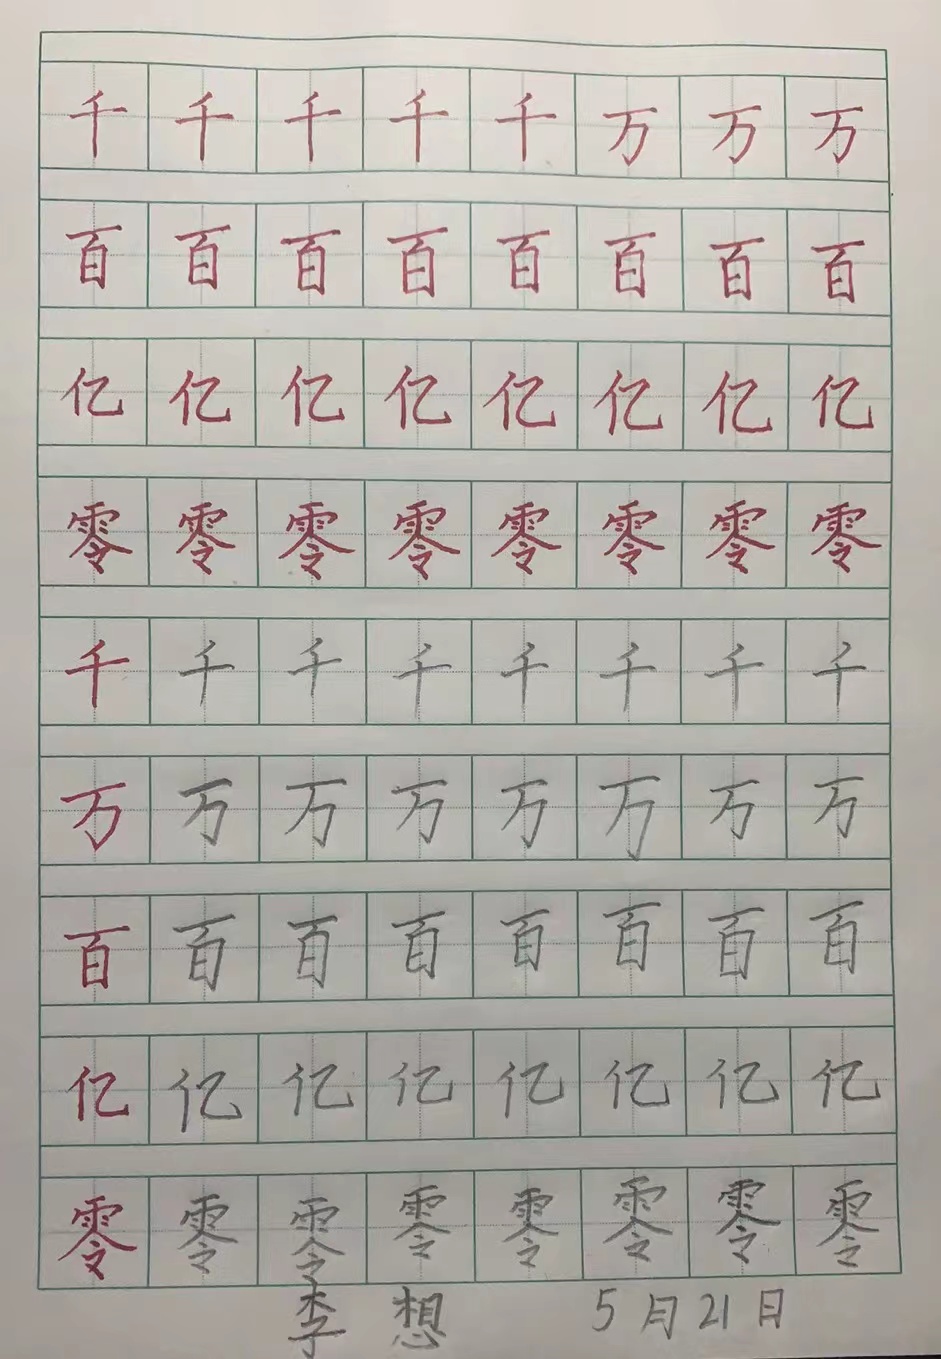 千千千千千万万万
百百百百百百百百
亿亿亿亿亿亿亿亿
零零零零零零零零
千千千千千千千千
万万万万万万万万
百百百百百百百百
亿亿亿亿亿亿亿亿
零零零零零零零零
李想 5月21日